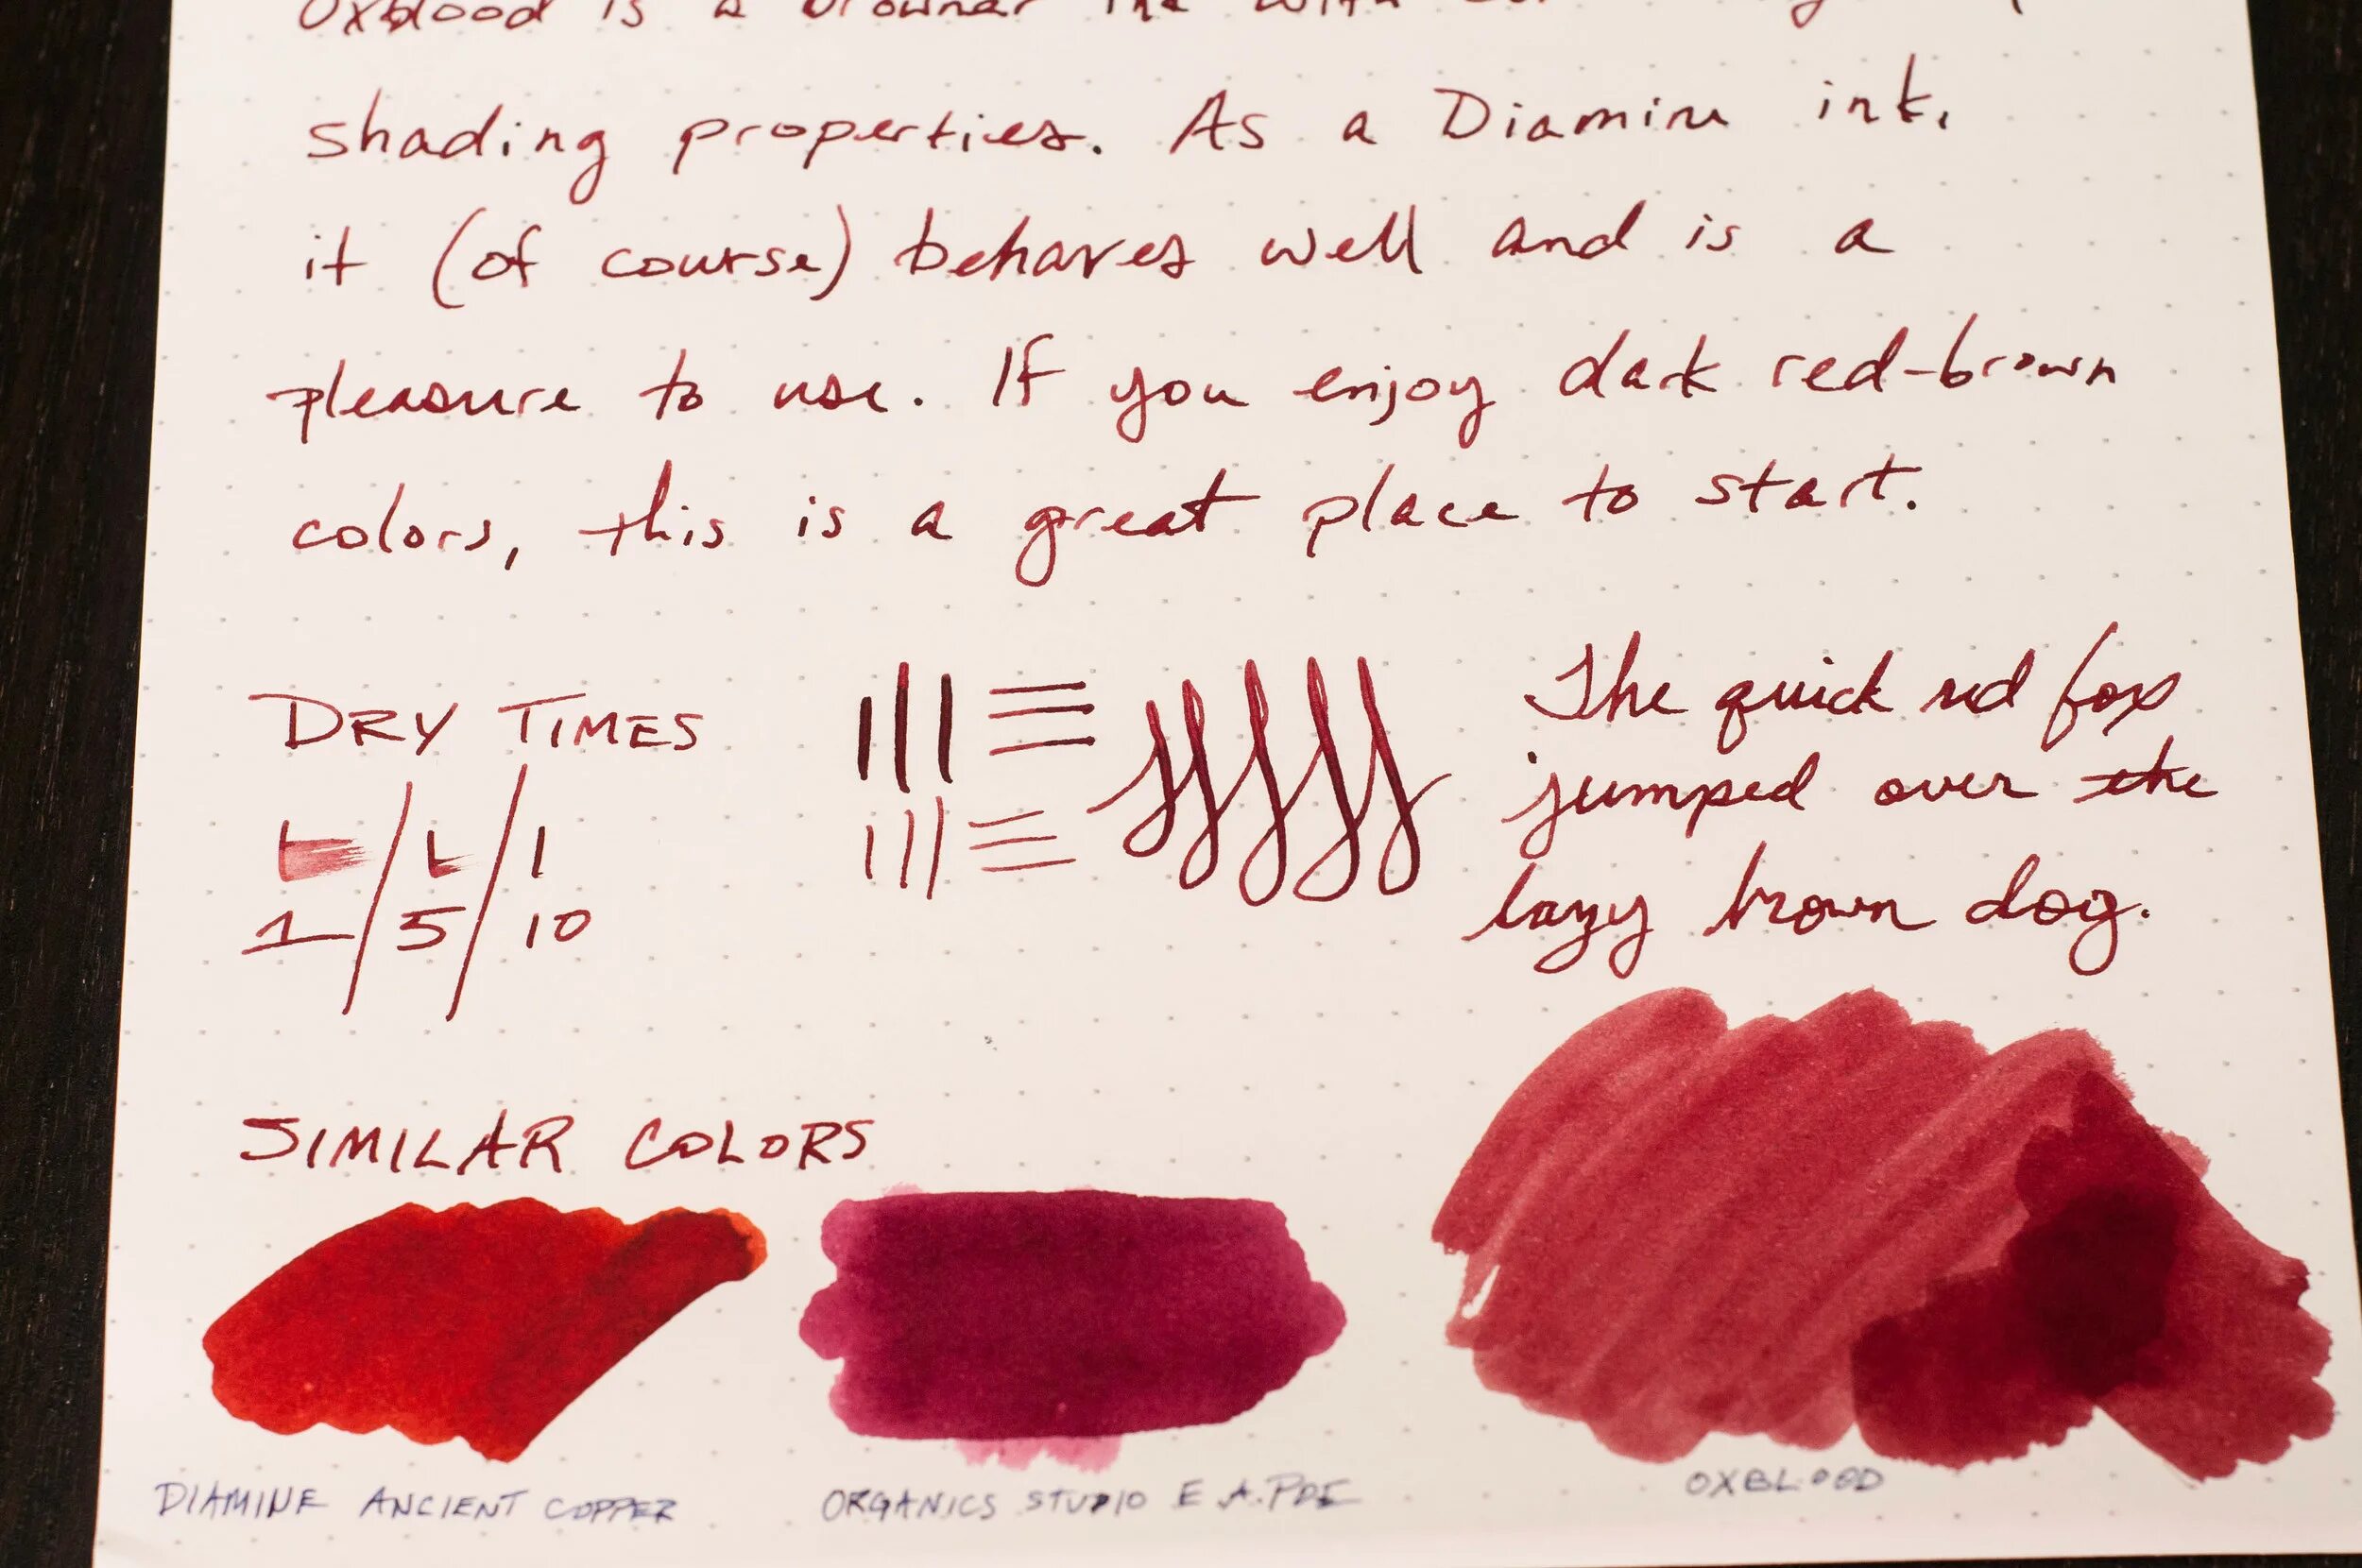 Oxblood is a browner ink with
shading properties. As a Diamine ink,
it (of course) behaves well and is a
pleasure to use. If you enjoy dark red-brown
colors, this is a great place to start.
DRY TIMES
1 / 5 / 10
The quick red fox
jumped over the
lazy brown dog.
SIMILAR COLORS
DIAMINE ANCIENT COPPER
ORGANICS STUDIO E A. POE
OXBLOOD